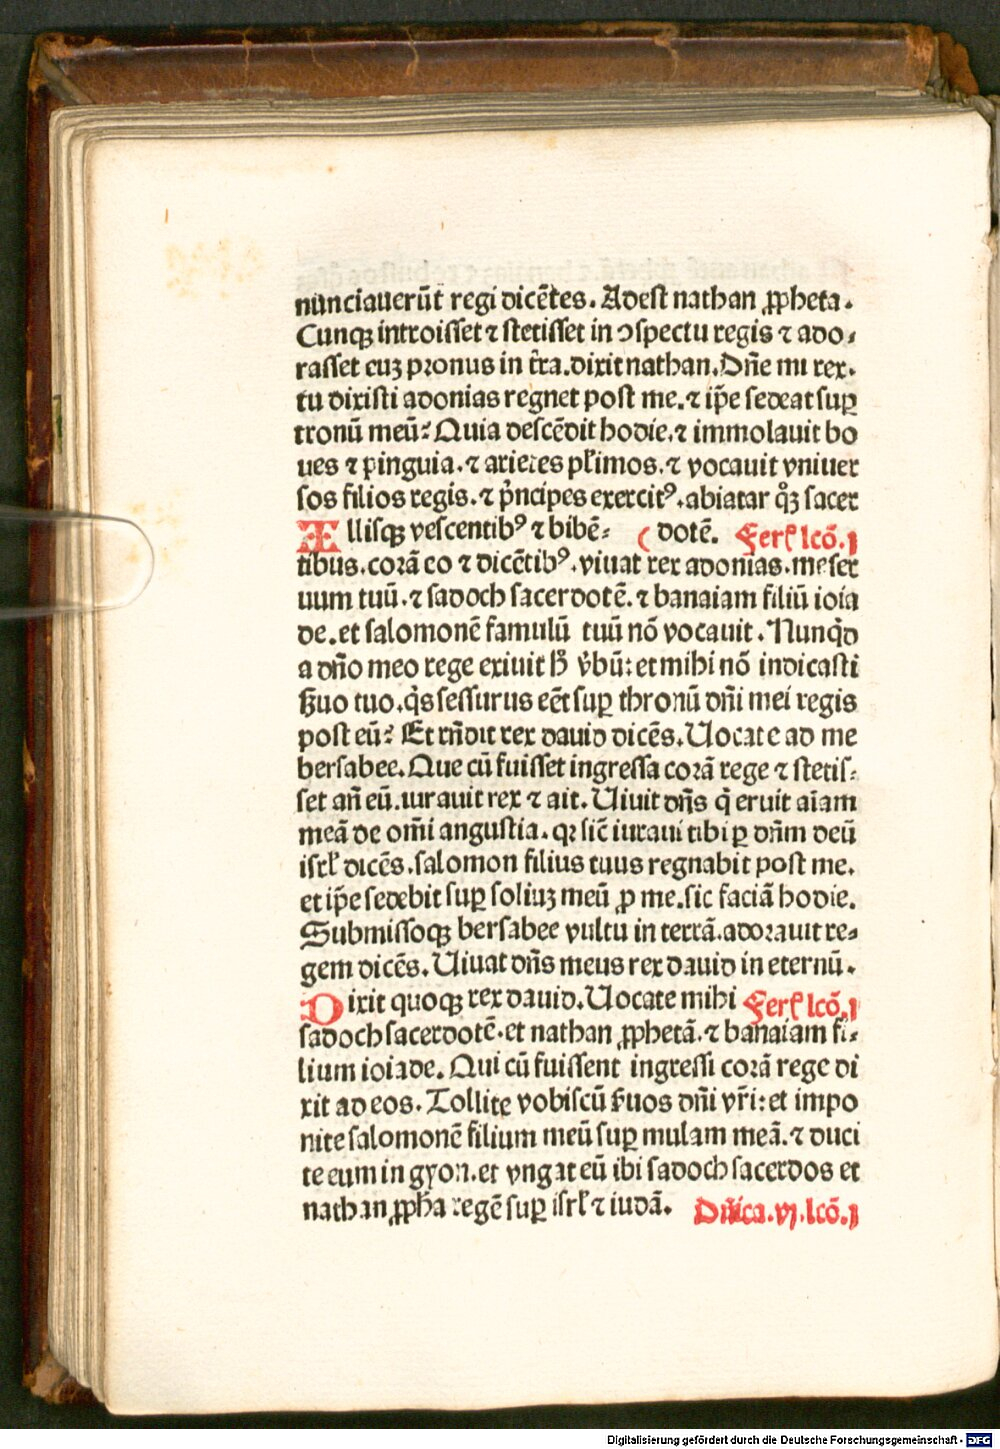 nunciauerūt regi dicētes. Adest nathan ꝓpheta.
Cunqꝫ introisset ⁊ stetisset in ↄspectu regis ⁊ ado-
rasset cuꝫ pronus in t̄ra. dixit nathan. Dn̄e mi rex.
tu dixisti adonias regnet post me. ⁊ ip̄e sedeat suꝑ
tronū meū? Quia descēdit hodie. ⁊ immolauit bo
ues ⁊ pinguia. ⁊ arietes pl̄imos. ⁊ vocauit vniuer
sos filios regis. ⁊ p̄ncipes exercitꝰ. abiatar qͦꝫ sacer
Illisqꝫ vescentibꝰ ⁊ bibē- ( dotē. Fer̄ lcō.
tibus. corā eo ⁊ dicētibꝰ. viuat rex adonias. me ser
uum tuū. ⁊ sadoch sacerdotē. ⁊ banaiam filiū ioia
de. et salomonē famulū tuū nō vocauit. Nunqͥd
a dn̄o meo rege exiuit hͦ v̄bū: et mihi nō indicasti
ẜuo tuo. qͥs sessurus eēt suꝑ thronū dn̄i mei regis
post eū? Et rn̄dit rex dauid dicēs. Uocate ad me
bersabee. Que cū fuisset ingressa corā rege ⁊ stetis-
set an̄ eū. iurauit rex ⁊ ait. Uiuit dn̄s qͥ eruit aīam
meā de om̄i angustia. qꝛ sic̄ iuraui tibi ꝑ dn̄m deū
isrl̄ dicēs. salomon filius tuus regnabit post me.
et ip̄e sedebit suꝑ soliuꝫ meū ꝓ me. sic faciā hodie.
Submissoqꝫ bersabee vultu in terrā. adorauit re-
gem dicēs. Uiuat dn̄s meus rex dauid in eternū.
Dixit quoqꝫ rex dauid. Uocate mihi Fer̄ lcō.
sadoch sacerdotē. et nathan ꝓphetā. ⁊ banaiam fi-
lium ioiade. Qui cū fuissent ingressi corā rege di
xit ad eos. Tollite vobiscū ẜuos dn̄i vr̄i: et impo
nite salomonē filium meū suꝑ mulam meā. ⁊ duci
te eum in gyon. et vngat eū ibi sadoch sacerdos et
nathan ꝓph̄a regē suꝑ isrl̄ ⁊ iudā. Dn̄ica. vj. lcō. j
Digitalisierung gefördert durch die Deutsche Forschungsgemeinschaft - DFG